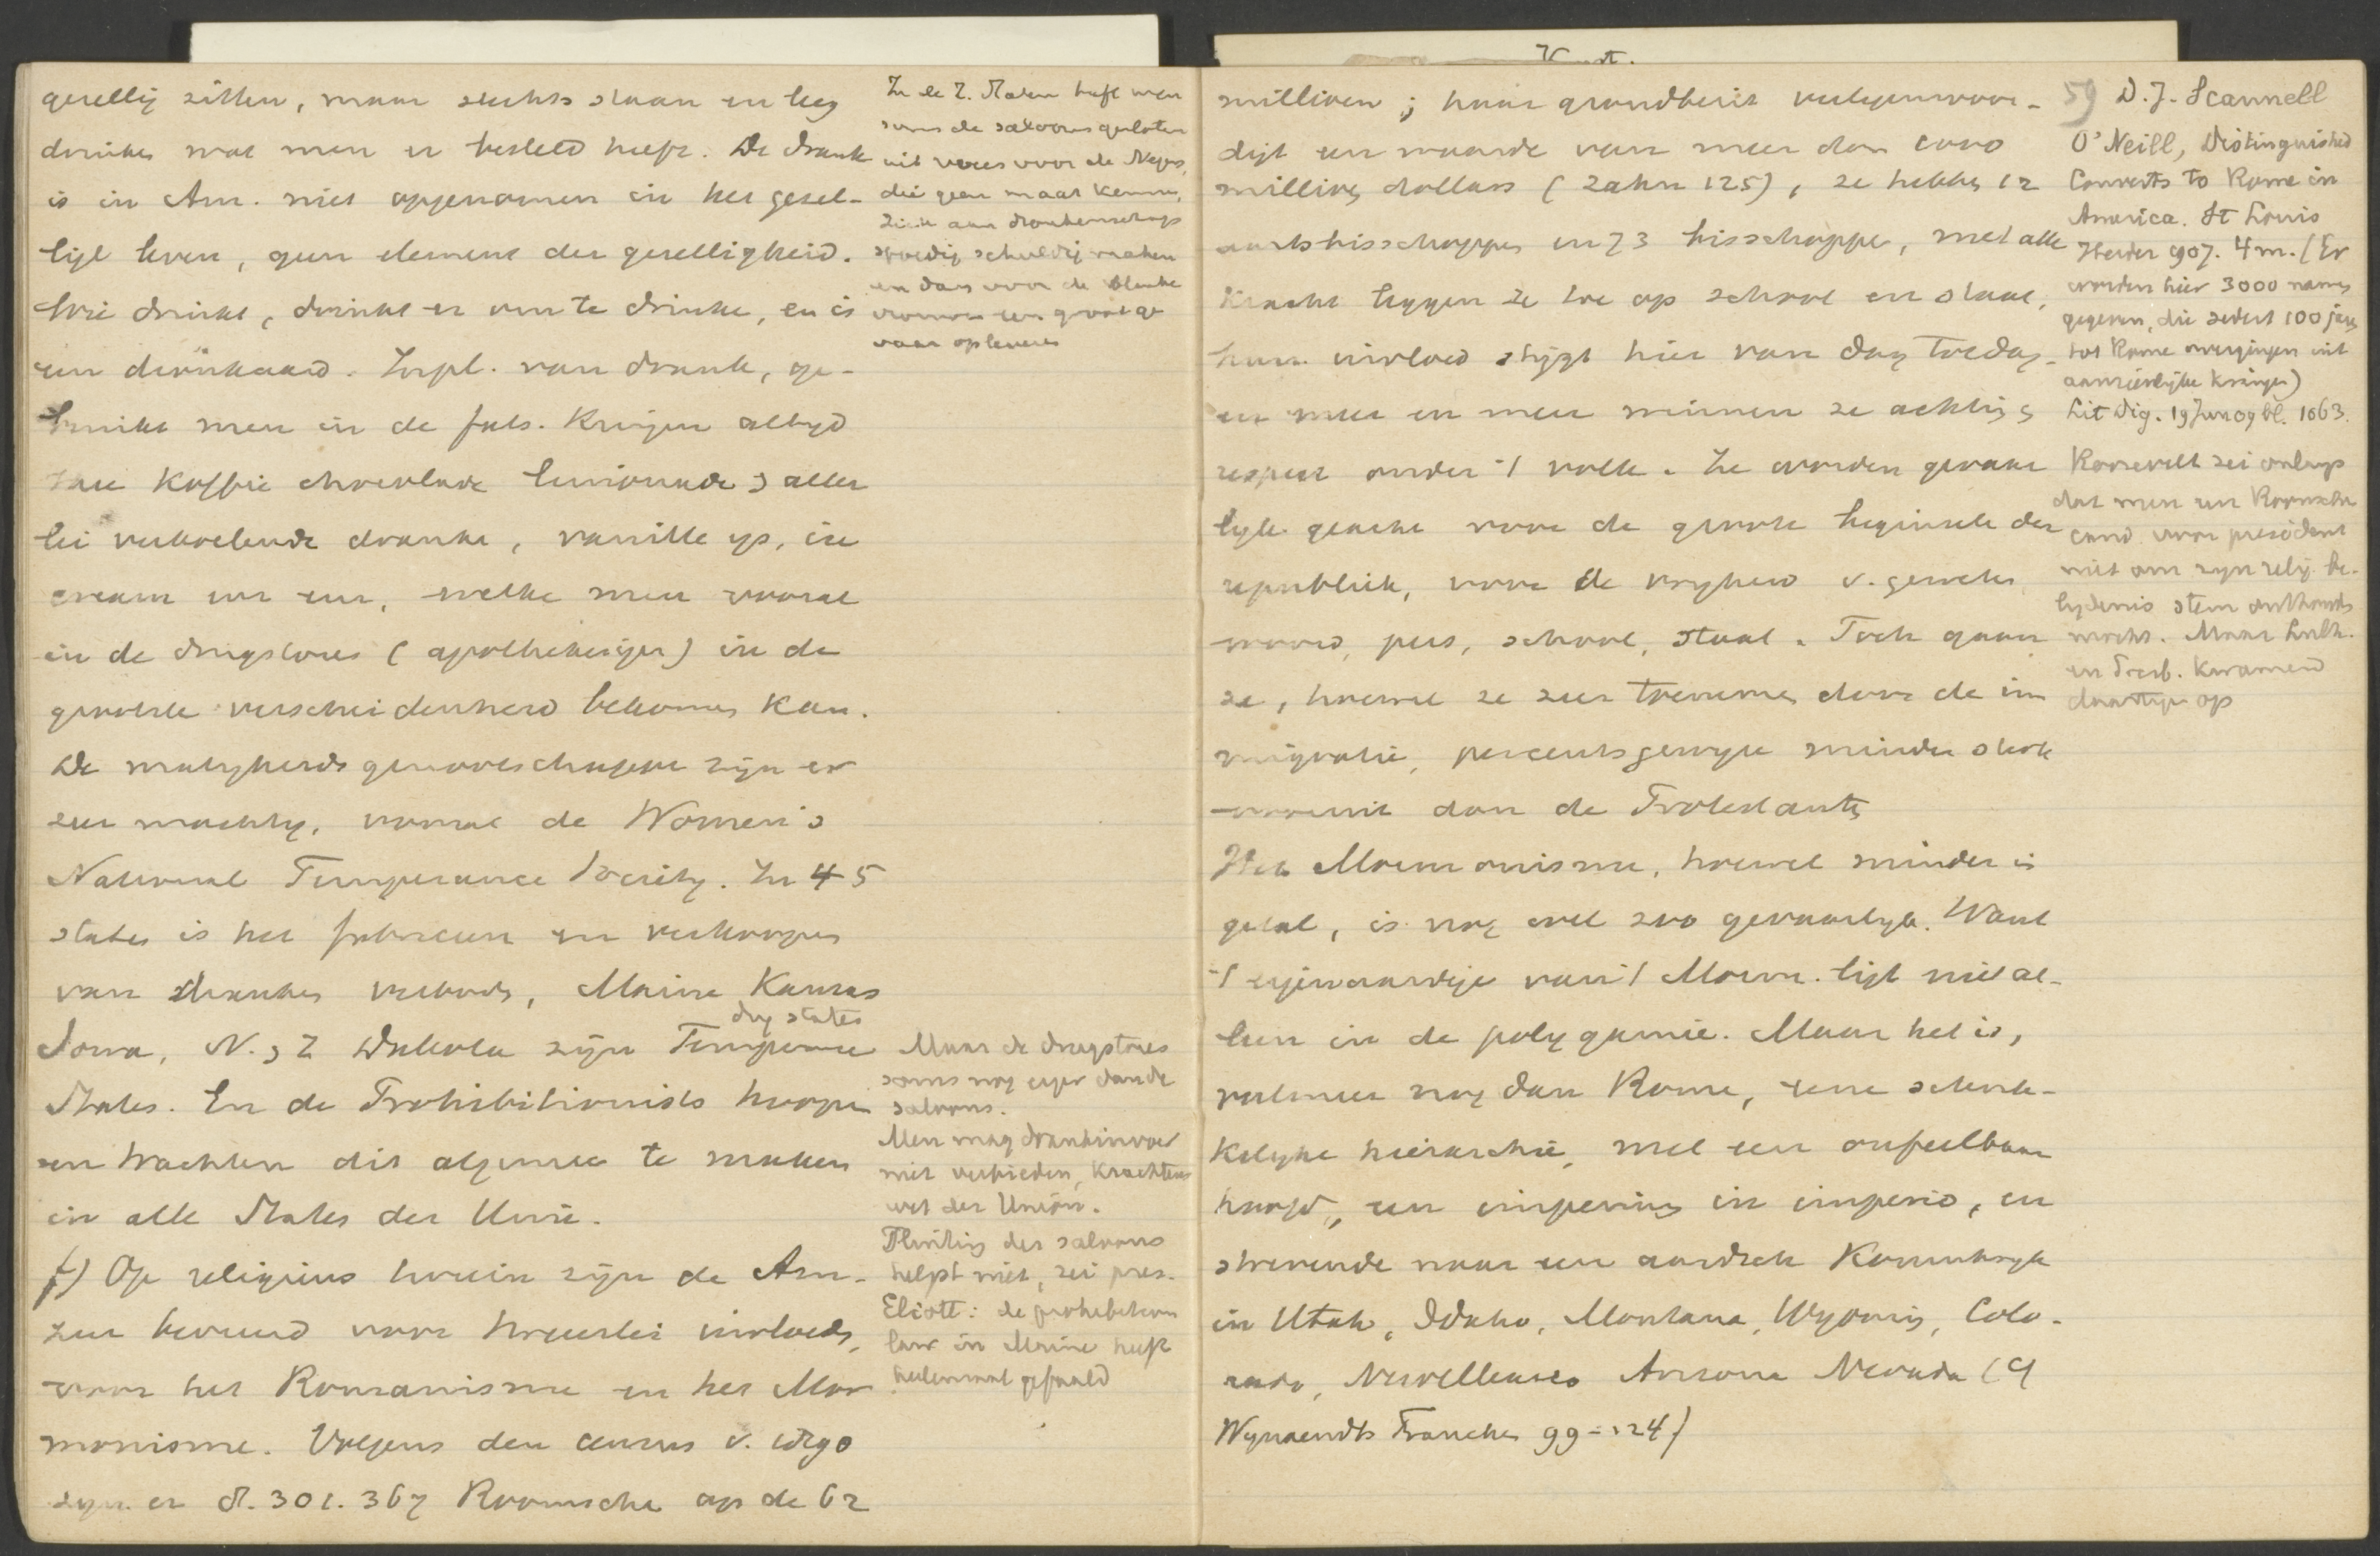 gezellig zitten, maar slechts staan en leeg
drinken wat men er besteld heeft. De drank
is in Am. niet opgenomen in het gezel-
lige leven, geen element der gezelligheid.
Wie drinkt, drinkt er om te drinken, en is
een dronkaard. In pl. van drank, ge-
bruikt men in de fats. Kringen altijd
thee koffie chocolade limonade & aller
lei verkoelende dranken, vanille ys, ice
cream enz enz, welke men vooral
in de drugstores (apothekerijen) in de
grootste verscheidenheid bekomen kan.
De matigheidsgenootschappen zijn er
zeer machtig, vooral de Women's
National Temperance Society. In 45
states is het fabriceren en verkoopen
van dranken verboden, Maine Kansas
dry states
Iowa, N. & Z Dakota zijn Temperance
States. En de Prohibitionists hoopen
en trachten dit algemeen te maken
in alle States der Unie.
f) Op religieus terrein zijn de Am.
zeer bevreesd voor tweeerlei invloeds,
voor het Romanisme en het Mor
monisme. Volgens den census v. 1890
zyn er 8.301.367 Roomsche op de 62
In de Z. Staten heeft men
soms de saloons gesloten
uit vrees voor de Negers,
die geen maat kennen,
zich aan dronkenschap
spoedig schuldig maken
en dan voor de blanke
vrouwen een groot ge
vaar opleveren
Maar de drugstores
soms nog erger dan de
saloons.
Men mag drankinvoer
niet verbieden, krachtens
wet der Union.
Sluiting der saloons
helpt niet, zei pres.
Eliott: de prohibition
law in Maine heeft
helemaal gefaald
Kunst.
millioen; haar grondbezit vertegenwoor-
digt een waarde van meer dan
millioen dollars (Zahn 125), ze hebben 12
aartsbisschoppen en 73 bisschoppen, met alle
Kracht leggen ze toe op school en staat,
hun invloed stijgt hier van dag tot dag
en meer en meer winnen ze achting &
respect onder 't volk. Ze worden gevaar
lyk geacht voor de groote beginselen der
republiek, voor de vryheid v. geweten
woord, pers, school, staat. Toch gaan
ze, hoewel ze zeer toenemen door de im
migratie, percentsgewyze minder sterk
vooruit dan de Protestanten
Het Mormonisme, hoewel minder in
getal, is nog wel zoo gevaarlyk. Want
't eigenaardige van 't Morm. ligt niet al-
leen in de polygamie. Maar het is,
veelmeer nog dan Rome, eene
Kelyke hierarchie, met een onfeilbaar
hoofd, een imperium in imperio, en
strevende naar een aardsch Koninkryk
in Utah, Idaho, Montana, Wyoming, Colo-
rado, Arizona Nevada (cf
Wynaendts Francken 99-124)
59 D. J. Scannell
O'Neill, Distinguished
Converts to Rome in
America. St Louis
Herder 907. 4 m. (Er
worden hier 3000 namen
gegeven, die sedert 100 jaren
tot Rome overgingen uit
aanzienlijke kringen)
Lit Dig. 19 Jun 09 bl. 1063.
Roosevelt zei onlangs
dat men een Roomschen
cand. voor president
niet om zyn relig. be-
lydenis stem onthouden
mocht. Maar Luth.
en Presb. kwamen
daartegen op